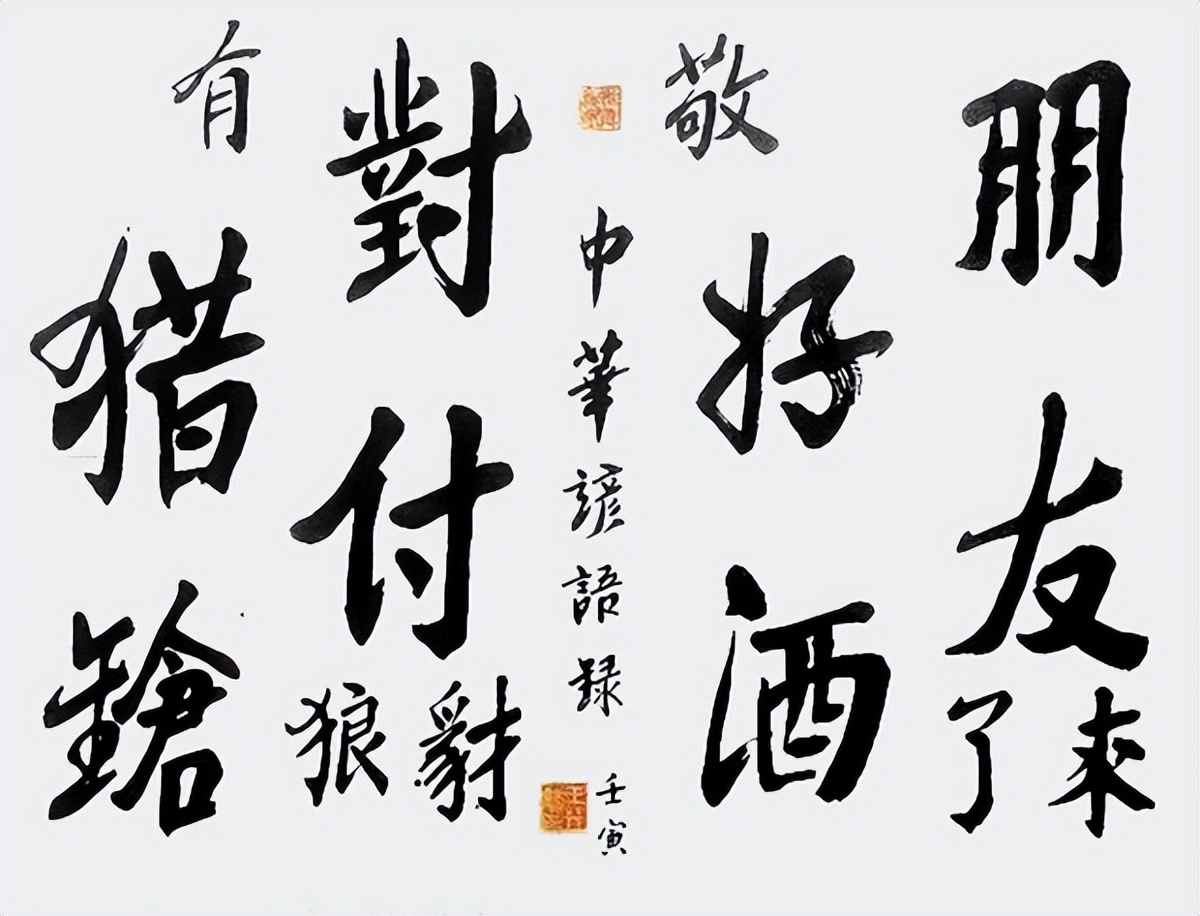 朋友来了
敬好酒
中華諺語録
壬寅
對付豺狼
有猎鎗